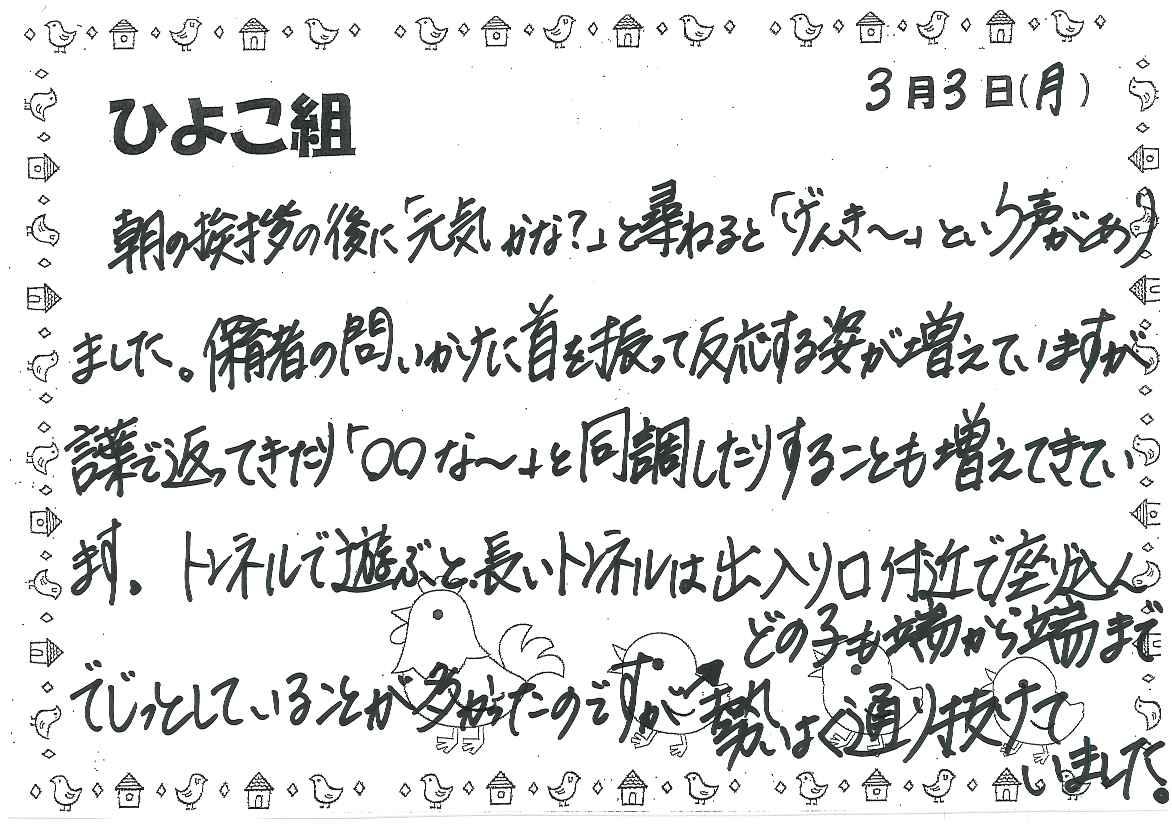 3月3日(月)
ひよこ組
朝の挨拶の後に「元気かな?」と尋ねると「げんき〜」という声がとあり
ました。保育者の問いかけに首を振って反応する姿が増えていますが
言葉で返ってきたり「〇〇な〜」と同調したりすることも増えてきてい
ます。トンネルで遊ぶと、長いトンネルは出入り口付近で座り込ん
でじっとしていることが多かったのですが
どの子も端から端まで
勢いよく通り抜けて
いました。